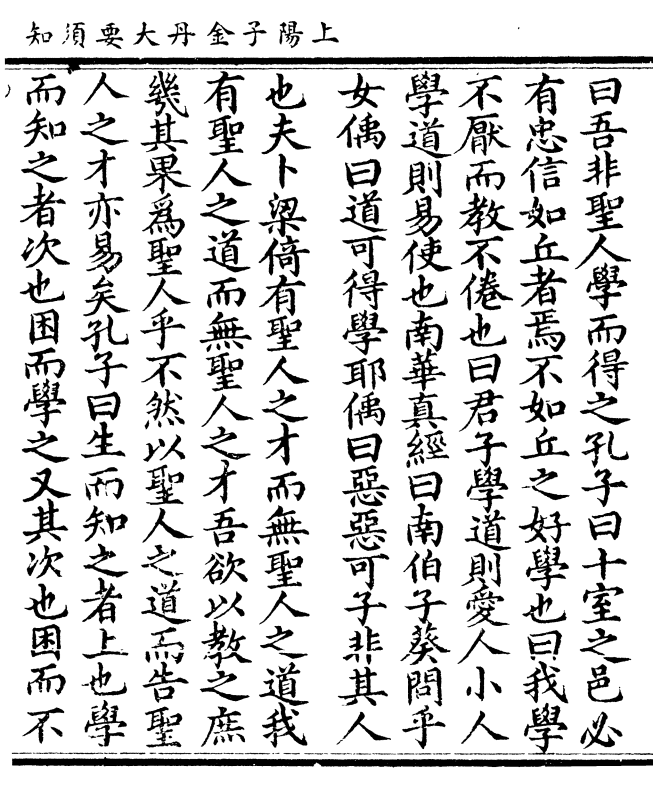 上陽子金丹大要須知
曰吾非聖人學而得之孔子曰十室之邑必
有忠信如丘者焉不如丘之好學也曰我學
不厭而教不倦也曰君子學道則愛人小人
學道則易使也南華真經曰南伯子葵問乎
女偊曰道可得學耶偊曰惡惡可子非其人
也夫卜梁倚有聖人之才而無聖人之道我
有聖人之道而無聖人之才吾欲以教之庶
幾其果爲聖人乎不然以聖人之道而告聖
人之才亦易矣孔子曰生而知之者上也學
而知之者次也困而學之又其次也困而不